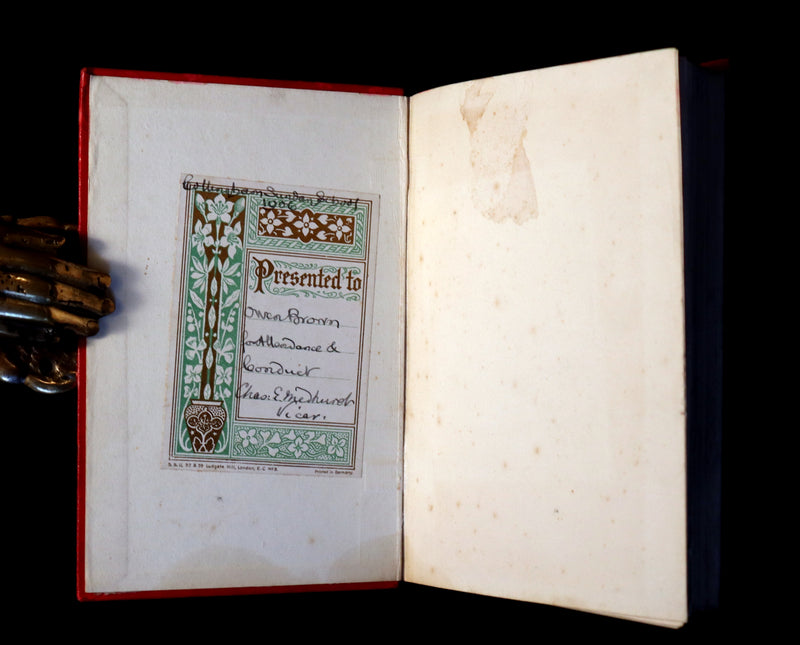 Collingham Sunday School
1906
Presented to
Owen Brown
for Attendance &
Conduct
Chas. E. Medhurst
Vicar.
S. S. U. 57 & 59 Ludgate Hill, London, E.C.
Printed in Germany